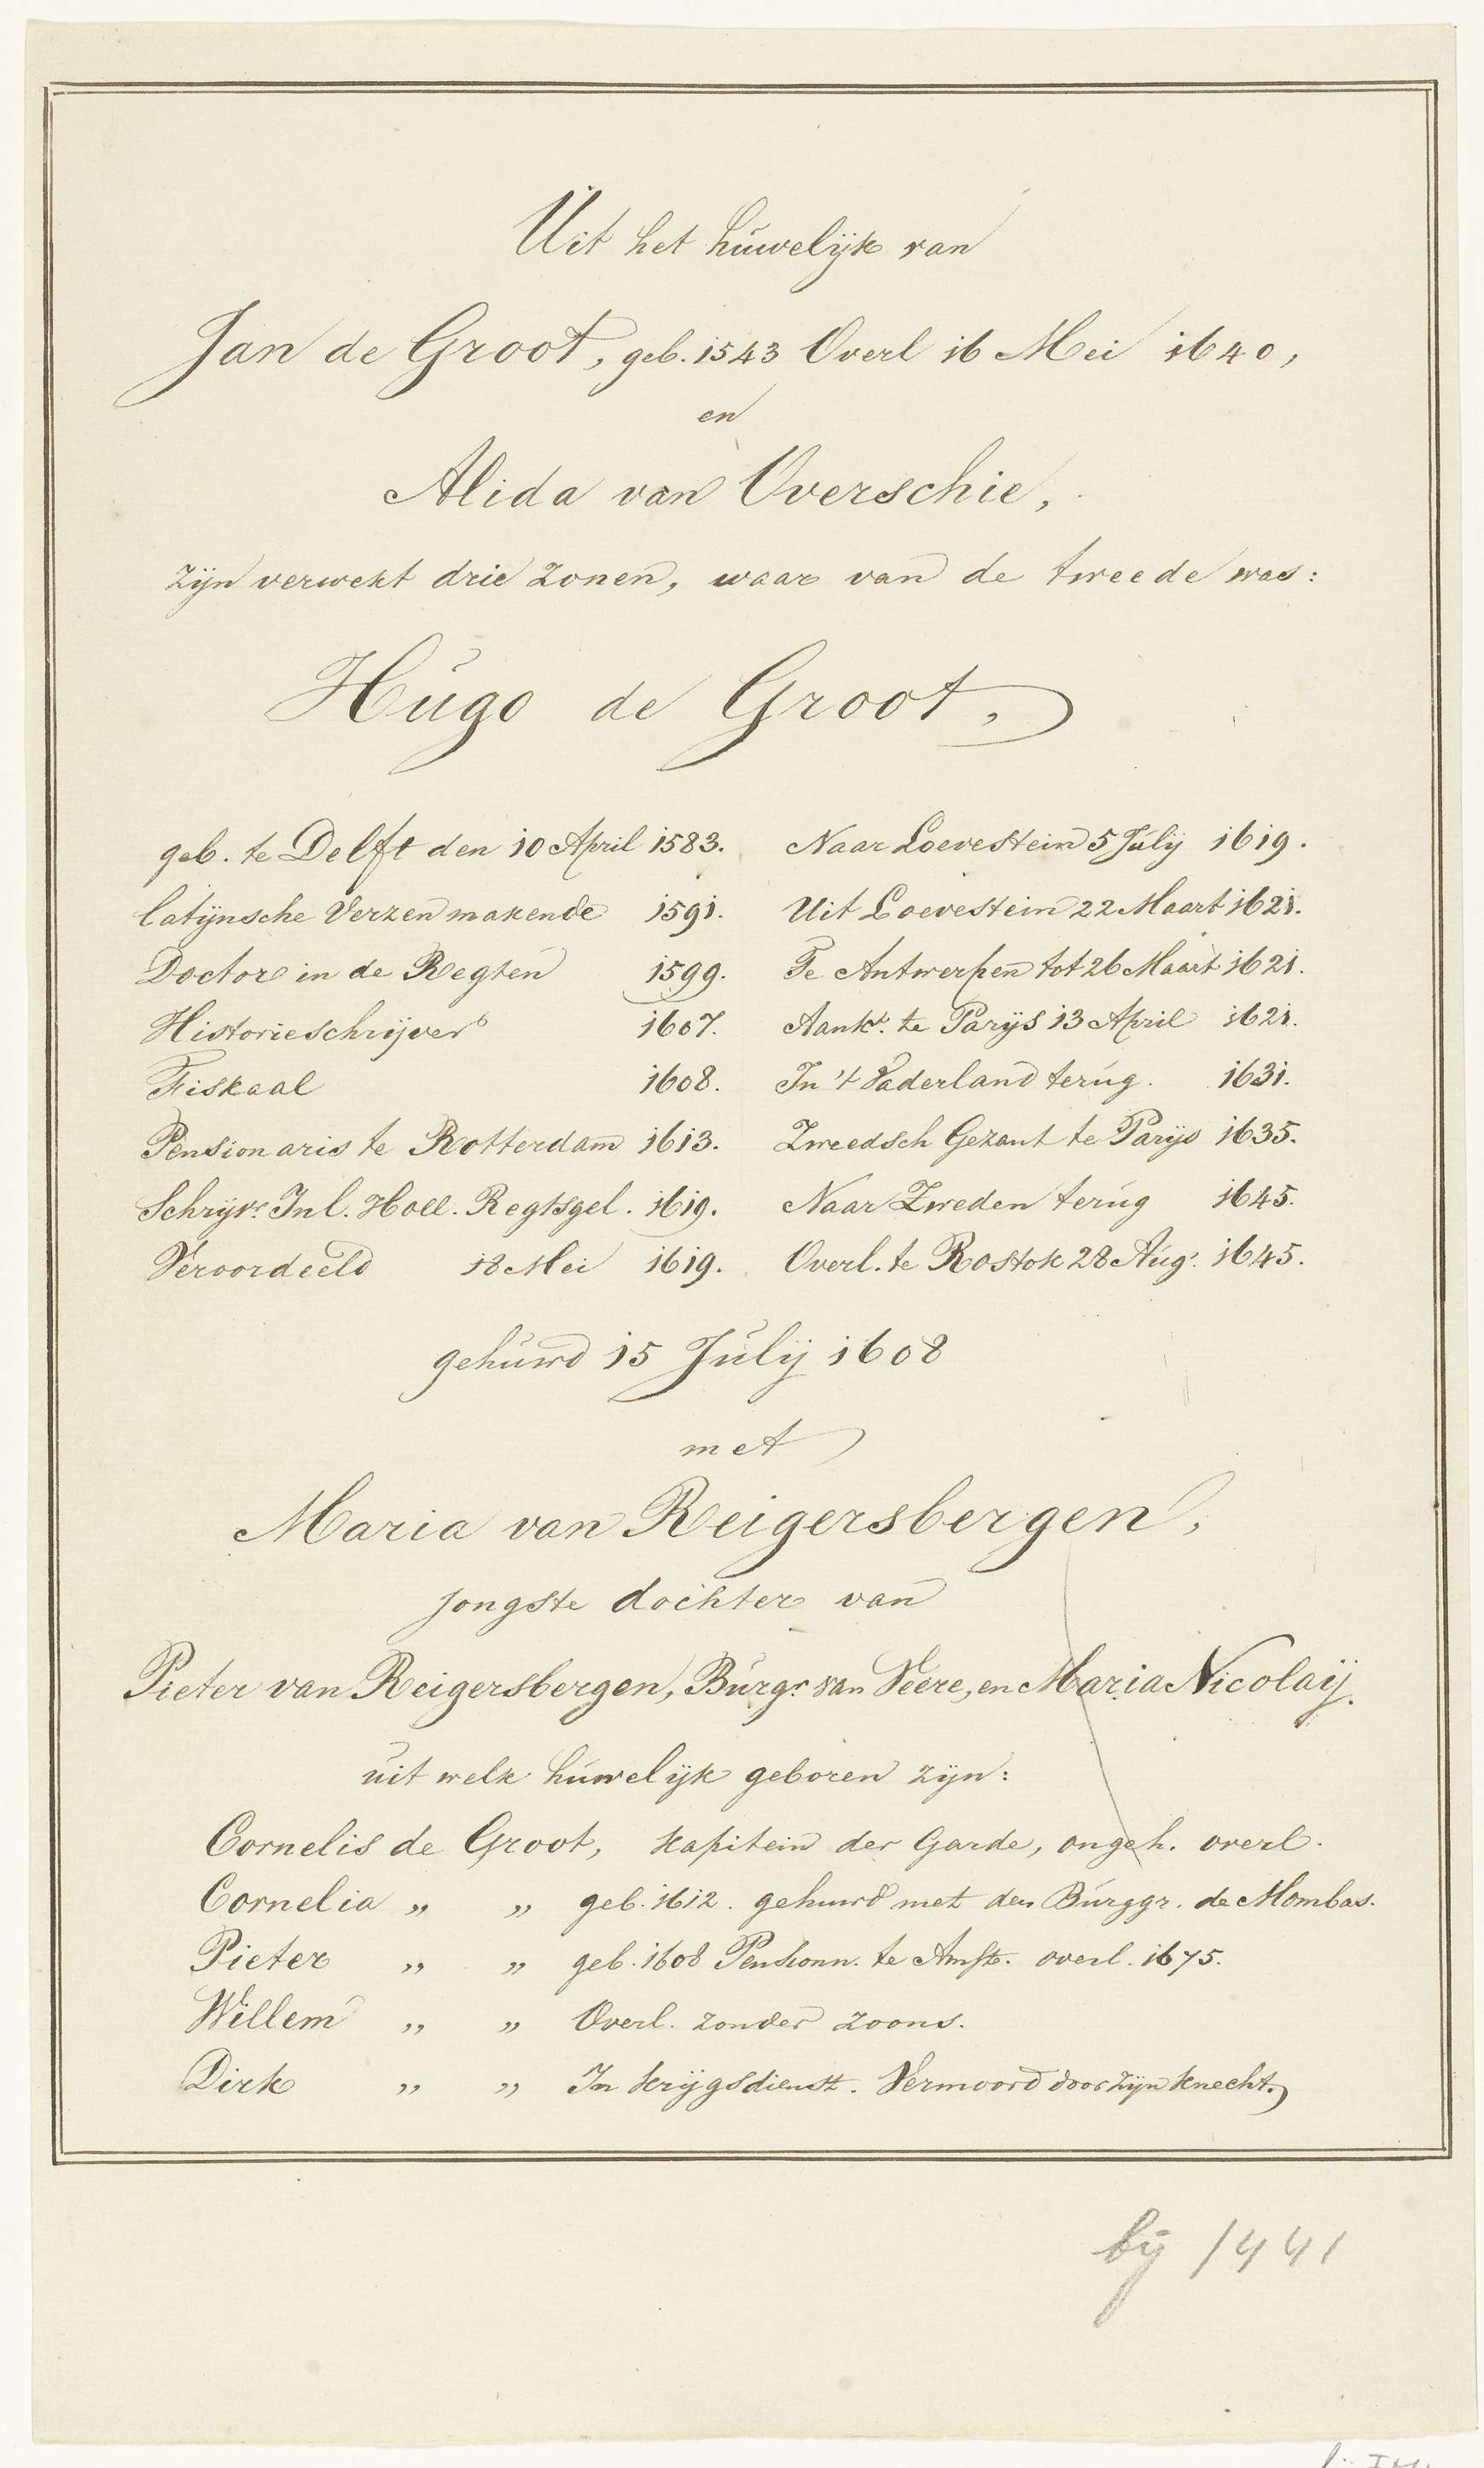 Uit het huwelijk van
Jan de Groot, geb. 1543 Overl 16 Mei 1640,
en
Alida van Overschie,
zijn verwekt drie zonen, waar van de tweede was:
Hugo de Groot,
geb. te Delft den 10 April 1583. Naar Loevestein 5 Julij 1619.
latijnsche Verzen makende 1591. Uit Loevestein 22 Maart 1621.
Doctor in de Regten 1599. Te Antwerpen tot 26 Maart 1621.
Historieschrijver 1607. Aankt. te Parijs 13 April 1621.
Fiskaal 1608. In 't Vaderland terug. 1631.
Pensionaris te Rotterdam 1613. Zweedsch Gezant te Parijs 1635.
Schrijvr. Inl. Holl. Regtsgel. 1619. Naar Zweden terug 1645.
Veroordeeld 18 Mei 1619. Overl. te Rostok 28 Augs. 1645.
gehuwd 15 Julij 1608
met
Maria van Reigersbergen,
jongste dochter van
Pieter van Reigersbergen, Burgr. van Veere, en Maria Nicolaij.
uit welk huwelijk geboren zijn:
Cornelis de Groot, kapitein der Garde, ongeh. overl.
Cornelia „ „ geb. 1612. gehuwd met den Burggr. de Mombas.
Pieter „ „ geb. 1608 Pensionn. te Amst. overl. 1675.
Willem „ „ Overl. zonder zoons.
Dirk „ „ In krijgsdienst. Vermoord door zijn knecht.
bij 1441